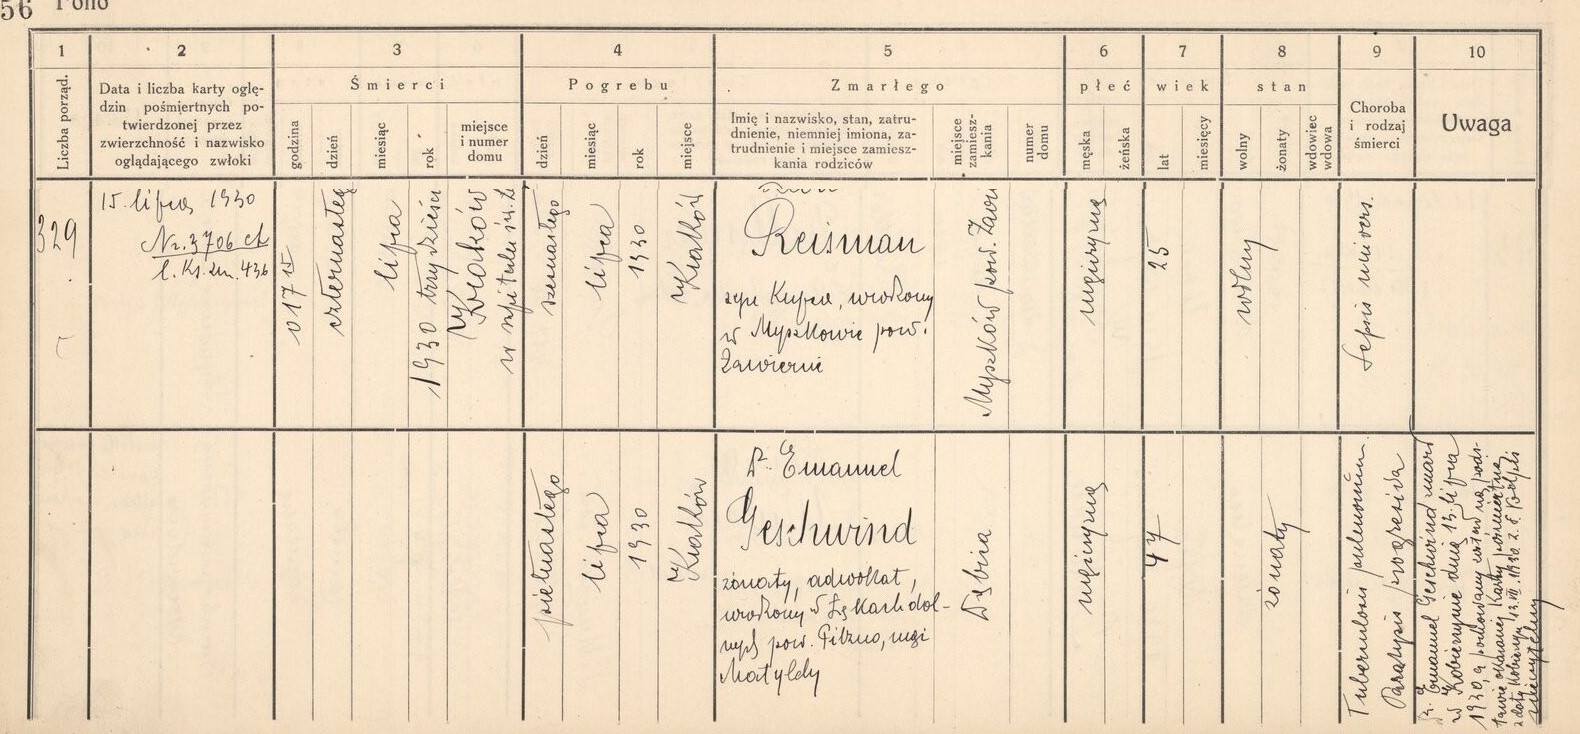 56 Folio
1 2 3 4 5 6 7 8 9 10
Liczba porząd.
Data i liczba karty oglę-
dzin pośmiertnych po-
twierdzonej przez
zwierzchność i nazwisko
oglądającego zwłoki
Śmierci
godzina
dzień
miesiąc
rok
miejsce
i numer
domu
Pogrebu
dzień
miesiąc
rok
miejsce
Zmarłego
Imię i nazwisko, stan, zatru-
dnienie, niemniej imiona, za-
trudnienie i miejsce zamiesz-
kania rodziców
miejsce
zamiesz-
kania
numer
domu
płeć
męska
żeńska
wiek
lat
miesięcy
stan
wolny
żonaty
wdowiec
wdowa
Choroba
i rodzaj
śmierci
Uwaga
329
15. lipca 1930
Nr. 3706 ct
l. Ks. zm. 436
o 17 15
czternastego
lipca
1930 trzydzieści
Kraków
w szpitalu św. Ł
szesnastego
lipca
1930
Kraków
Reisman
syn Kufra, urodzony
w Myszkowie pow.
Zawiercie
Myszków pow. Zawi
mężczyzna
25
wolny
Sepsis univers.
piętnastego
lipca
1930
Kraków
Dr. Emanuel
Geschwind
żonaty, adwokat,
urodzony w Łękach dol-
nych pow. Pilzno, mąż
Matyldy
Dębica
mężczyzna
47
żonaty
Tuberculosis pulmonum.
Paralysis progresiva
Dr. Emanuel Geschwind zmarł
w Kobierzynie dnia 13. lipca
1930, a pochowany został na pods-
tawie okazanej karty pośmiertnej
z daty Kobierzyn 13. VII. 1930